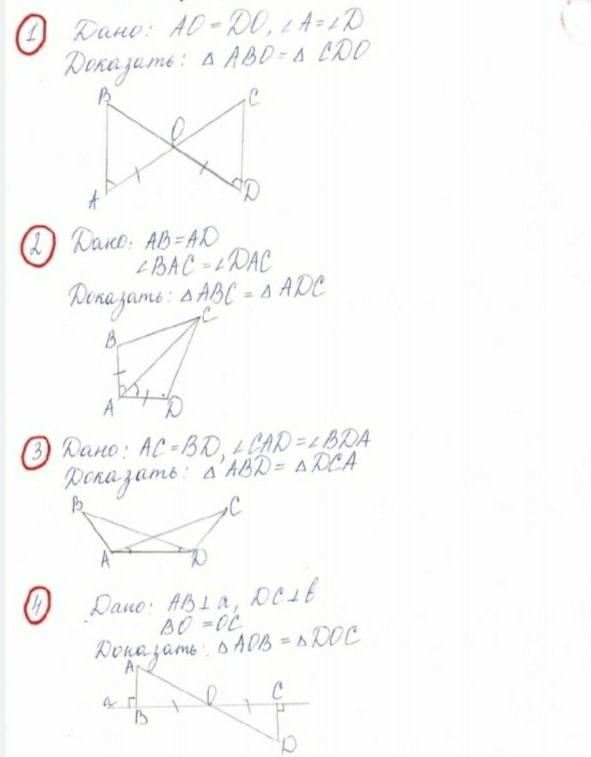 1 Дано: AO = DO, ∠A = ∠D
Доказать: △ ABO = △ CDO
B
C
O
A
D
2 Дано: AB = AD
∠BAC = ∠DAC
Доказать: △ABC = △ ADC
C
B
A
D
3 Дано: AC = BD, ∠CAD = ∠BDA
Доказать: △ ABD = △ DCA
B
C
A
D
4 Дано: AB ⊥ a, DC ⊥ b
BO = OC
Доказать: △AOB = △DOC
A
O
C
a
B
D